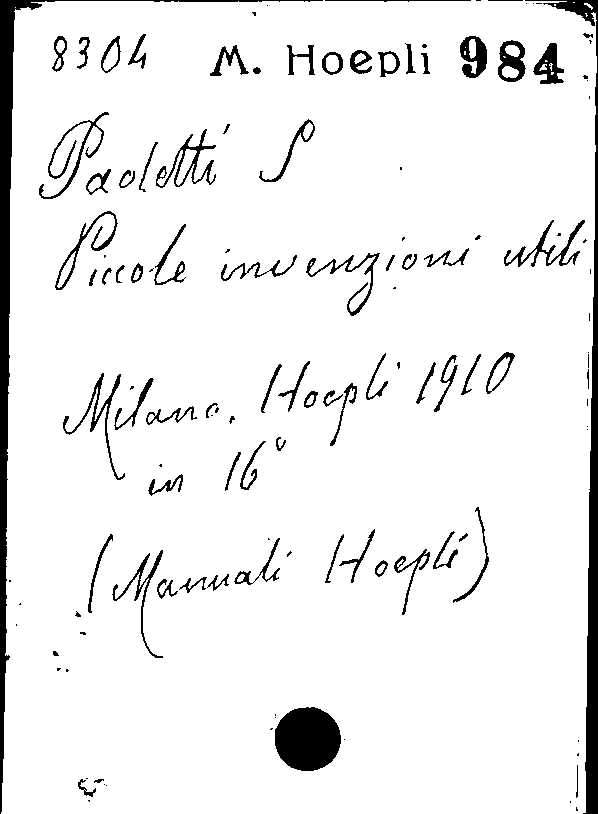 8304 M. Hoepli 984
Paoletti S
Piccole invenzioni utili
Milano, Hoepli 1910
in 16°
(Manuali Hoepli)